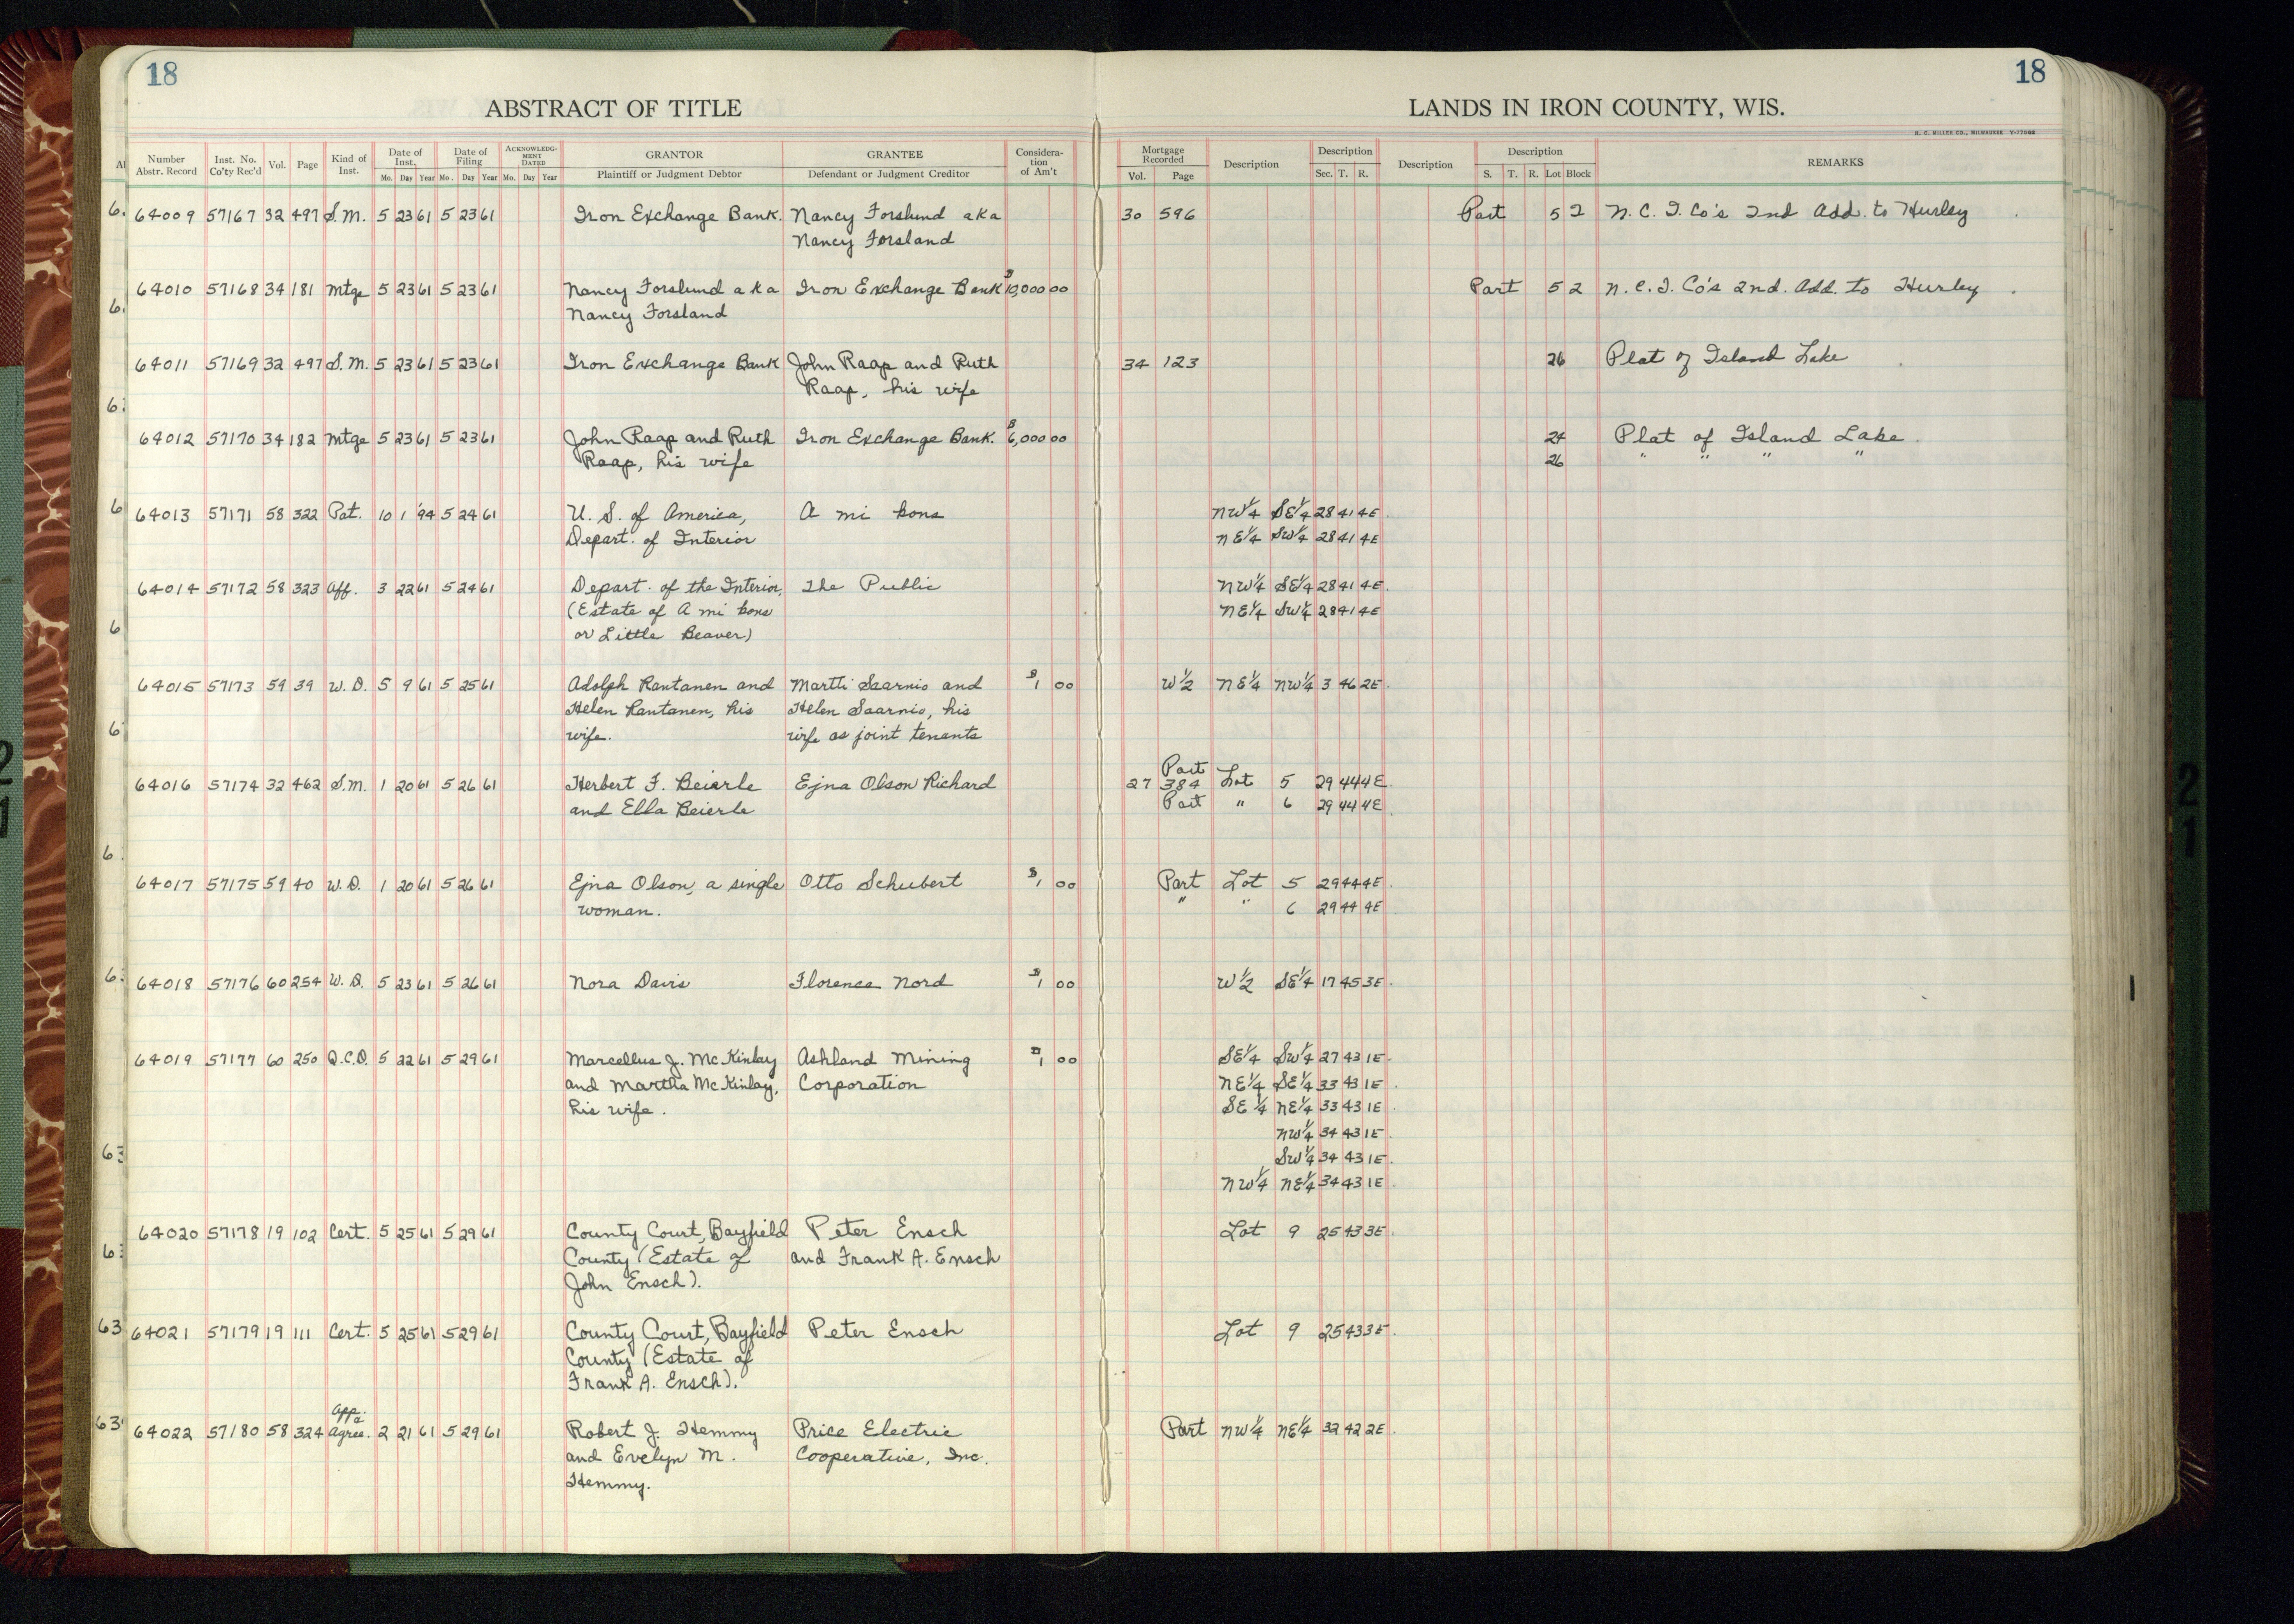 18
18
ABSTRACT OF TITLE
LANDS IN IRON COUNTY, WIS.
H. C. MILLER CO., MILWAUKEE
Number Abstr. Record Inst. No. Co'ty Rec'd Vol. Page Kind of Inst. Date of Inst. Date of Filing ACKNOWLEDG-MENT DATED GRANTOR GRANTEE Considera-tion of Am't Mortgage Recorded Description Description Description Description REMARKS
Mo. Day Year Mo. Day Year Mo. Day Year Plaintiff or Judgment Debtor Defendant or Judgment Creditor Vol. Page Sec. T. R. S. T. R. Lot Block
64009 57167 32 497 S.M. 5 23 61 5 23 61 Iron Exchange Bank. Nancy Forslund aka 30 596 Part 5 2 N. C. I. Co's 2nd Add. to Hurley
Nancy Forsland
64010 57168 34 181 Mtge 5 23 61 5 23 61 Nancy Forslund aka Iron Exchange Bank $10,000 00 Part 5 2 N. C. I. Co's 2nd. Add. to Hurley
Nancy Forsland
64011 57169 32 497 S.M. 5 23 61 5 23 61 Iron Exchange Bank John Raap and Ruth 34 123 26 Plat of Island Lake
Raap, his wife
64012 57170 34 182 Mtge 5 23 61 5 23 61 John Raap and Ruth Iron Exchange Bank. $6,000 00 24 Plat of Island Lake
Raap, his wife 26 " " " "
64013 57171 58 322 Pat. 10 1 '94 5 24 61 U. S. of America, A mi kons NW 1/4 SE 1/4 28 41 4E
Depart. of Interior NE 1/4 SW 1/4 28 41 4E
64014 57172 58 323 Aff. 3 22 61 5 24 61 Depart. of the Interior, The Public NW 1/4 SE 1/4 28 41 4E
(Estate of A mi kons NE 1/4 SW 1/4 28 41 4E
or Little Beaver)
64015 57173 59 39 W. D. 5 9 61 5 25 61 Adolph Rantanen and Martti Saarnio and $1 00 W 1/2 NE 1/4 NW 1/4 3 46 2E
Helen Rantanen, his Helen Saarnio, his
wife. wife as joint tenants
Part
64016 57174 32 462 S.M. 1 20 61 5 26 61 Herbert F. Beierle Ejna Olson Richard 27 384 Lot 5 29 44 4E
and Ella Beierle Part " 6 29 44 4E
64017 57175 59 40 W. D. 1 20 61 5 26 61 Ejna Olson, a single Otto Schubert $1 00 Part Lot 5 29 44 4E
woman. " " 6 29 44 4E
64018 57176 60 254 W. D. 5 23 61 5 26 61 Nora Davis Florence Nord $1 00 W 1/2 SE 1/4 17 45 3E
64019 57177 60 250 Q.C.D. 5 22 61 5 29 61 Marcellus J. McKinlay Ashland Mining $1 00 SE 1/4 SW 1/4 27 43 1E
and Martha McKinlay, Corporation NE 1/4 SE 1/4 33 43 1E
his wife. SE 1/4 NE 1/4 33 43 1E
NW 1/4 34 43 1E
SW 1/4 34 43 1E
NW 1/4 NE 1/4 34 43 1E
64020 57178 19 102 Cert. 5 25 61 5 29 61 County Court, Bayfield Peter Ensch Lot 9 25 43 3E
County (Estate of and Frank A. Ensch
John Ensch).
64021 57179 19 111 Cert. 5 25 61 5 29 61 County Court, Bayfield Peter Ensch Lot 9 25 43 3E
County (Estate of
Frank A. Ensch).
64022 57180 58 324 Agree. 2 21 61 5 29 61 Robert J. Hemmy Price Electric Part NW 1/4 NE 1/4 32 42 2E
and Evelyn M. Cooperative, Inc.
Hemmy.